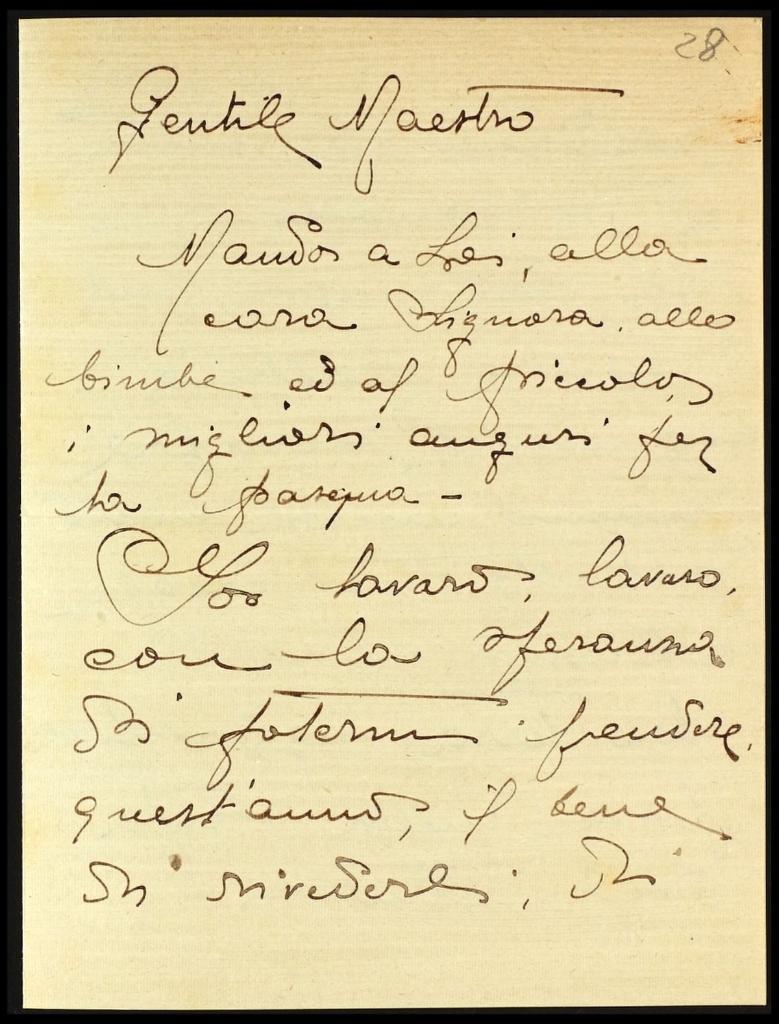 28
Gentile Maestro
Mando a Lei, alla
cara Signora, alle
bimbe ed al piccolo,
i migliori auguri per
la pasqua -
Io lavoro, lavoro,
con la speranza
di potermi prendere,
quest'anno, il bene
di rivederli, di